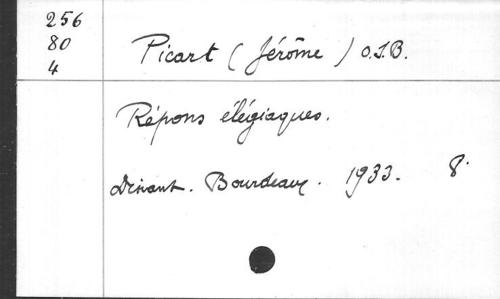 256
80
4
Picart (Jérôme) O.S.B.
Répons élégiaques.
Dinant. Bourdeaux. 1933. 8°